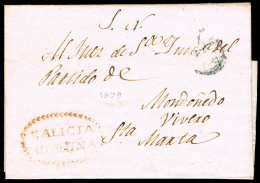 S. N.
Al Juez de
Partido de
1820
Mondoñedo
Vivero
Sta Marta
GALICIA
CORUÑA